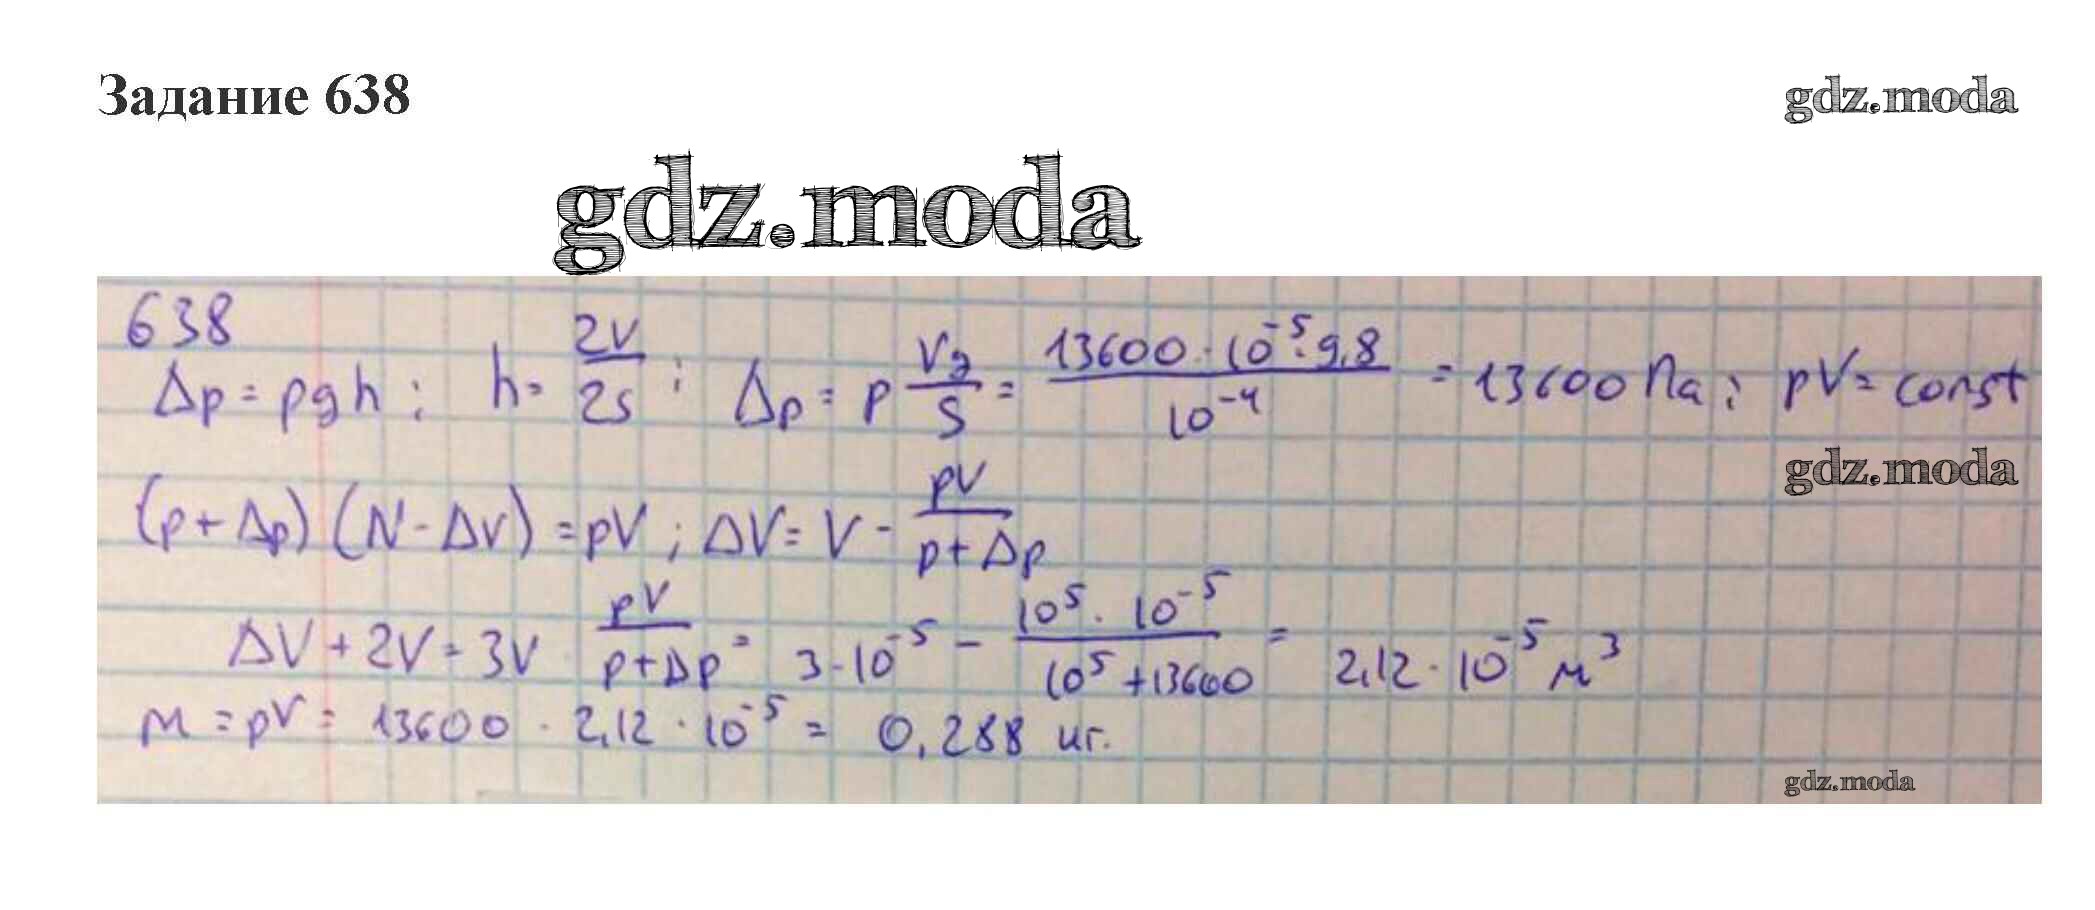 Задание 638
gdz.moda
gdz.moda
638
Δp = ρgh; h = 2V/2S; Δp = ρ Vg/S = 13600 · 10⁻⁵ · 9,8 / 10⁻⁴ = 13600 Па; pV = const
gdz.moda
(p + Δp) (N - ΔV) = pV; ΔV = V - pV/p + Δp
ΔV + 2V = 3V · pV/p + Δp = 3 · 10⁻⁵ - 10⁵ · 10⁻⁵ / 10⁵ + 13600 = 2,12 · 10⁻⁵ м³
м = ρV = 13600 · 2,12 · 10⁻⁵ = 0,288 кг.
gdz.moda